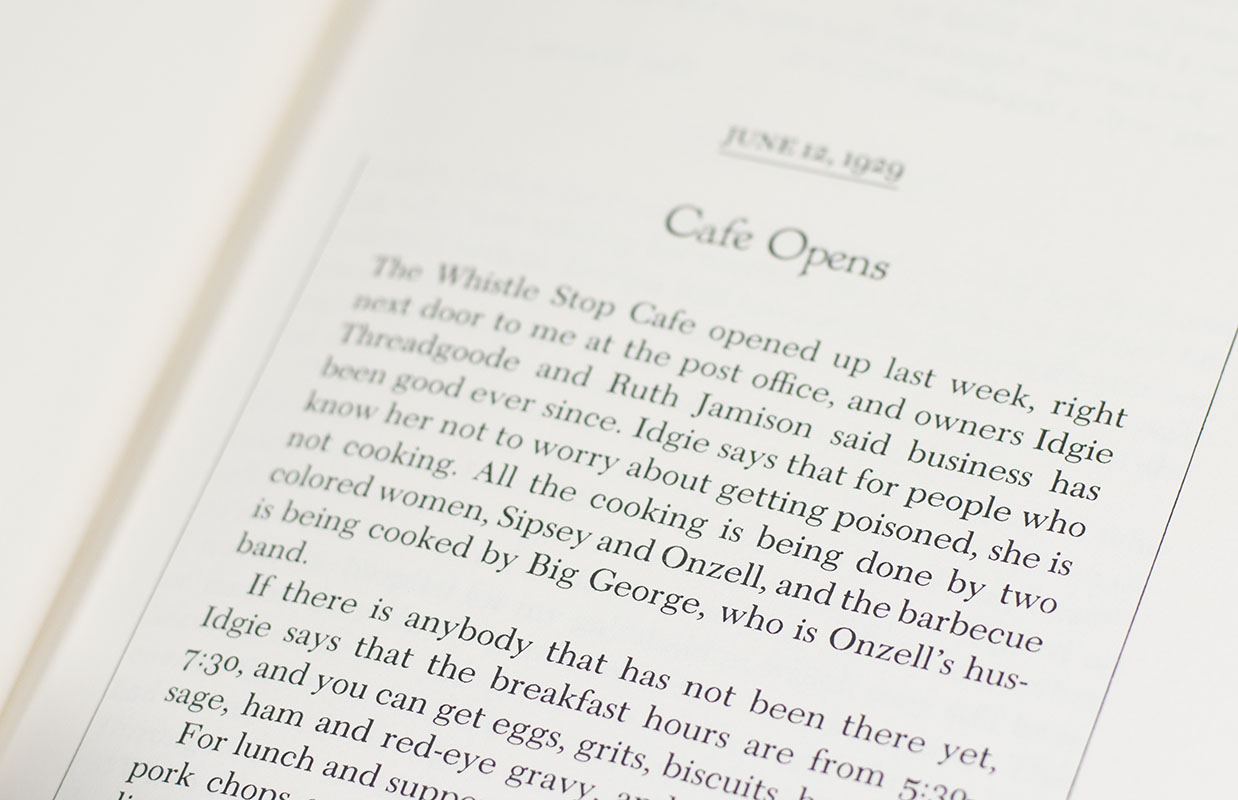 JUNE 12, 1929
Cafe Opens
The Whistle Stop Cafe opened up last week, right
next door to me at the post office, and owners Idgie
Threadgoode and Ruth Jamison said business has
been good ever since. Idgie says that for people who
know her not to worry about getting poisoned, she is
not cooking. All the cooking is being done by two
colored women, Sipsey and Onzell, and the barbecue
is being cooked by Big George, who is Onzell's hus-
band.
If there is anybody that has not been there yet,
Idgie says that the breakfast hours are from 5:30–
7:30, and you can get eggs, grits, biscuits,
sage, ham and red-eye gravy,
For lunch and
pork chops